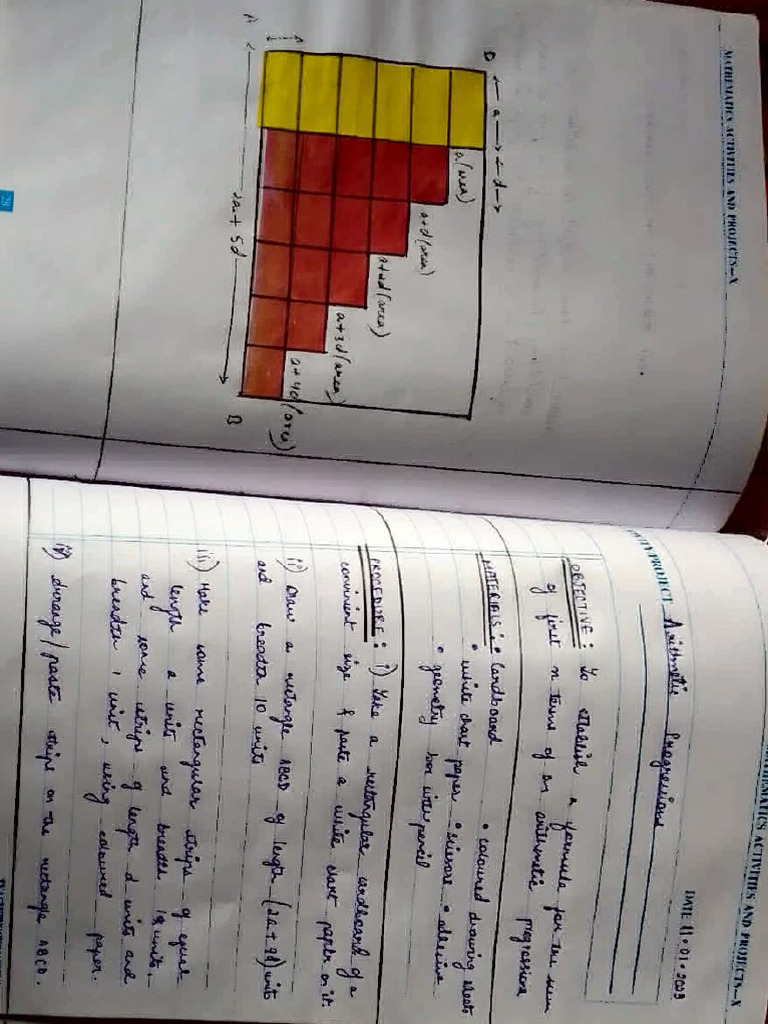 MATHEMATICS ACTIVITIES AND PROJECTS—X
D ← a → ← d →
a (area)
a+d (area)
a+2d (area)
a+3d (area)
a+4d (area)
A
2a + 5d
B
28
MATHEMATICS ACTIVITIES AND PROJECTS—X
DATE 11.01.2023
ACTIVITY/PROJECT Arithmetic Progressions
OBJECTIVE: To establish a formula for the sum
of first n terms of an arithmetic progression
MATERIALS: • Cardboard • coloured drawing sheets
• white chart paper • scissors • adhesive
• geometry box with pencil
PROCEDURE: i) Take a rectangular cardboard of a
convinient size & paste a white chart paper on it
ii) Draw a rectangle ABCD of length (2a+9d) units
and breadth 10 units
iii) Make some rectangular strips of equal
length a units and breadth 1 units.
and some strips of length d units and
breadth 1 unit, using coloured paper.
iv) Arrange/paste strips on the rectangle ABCD.